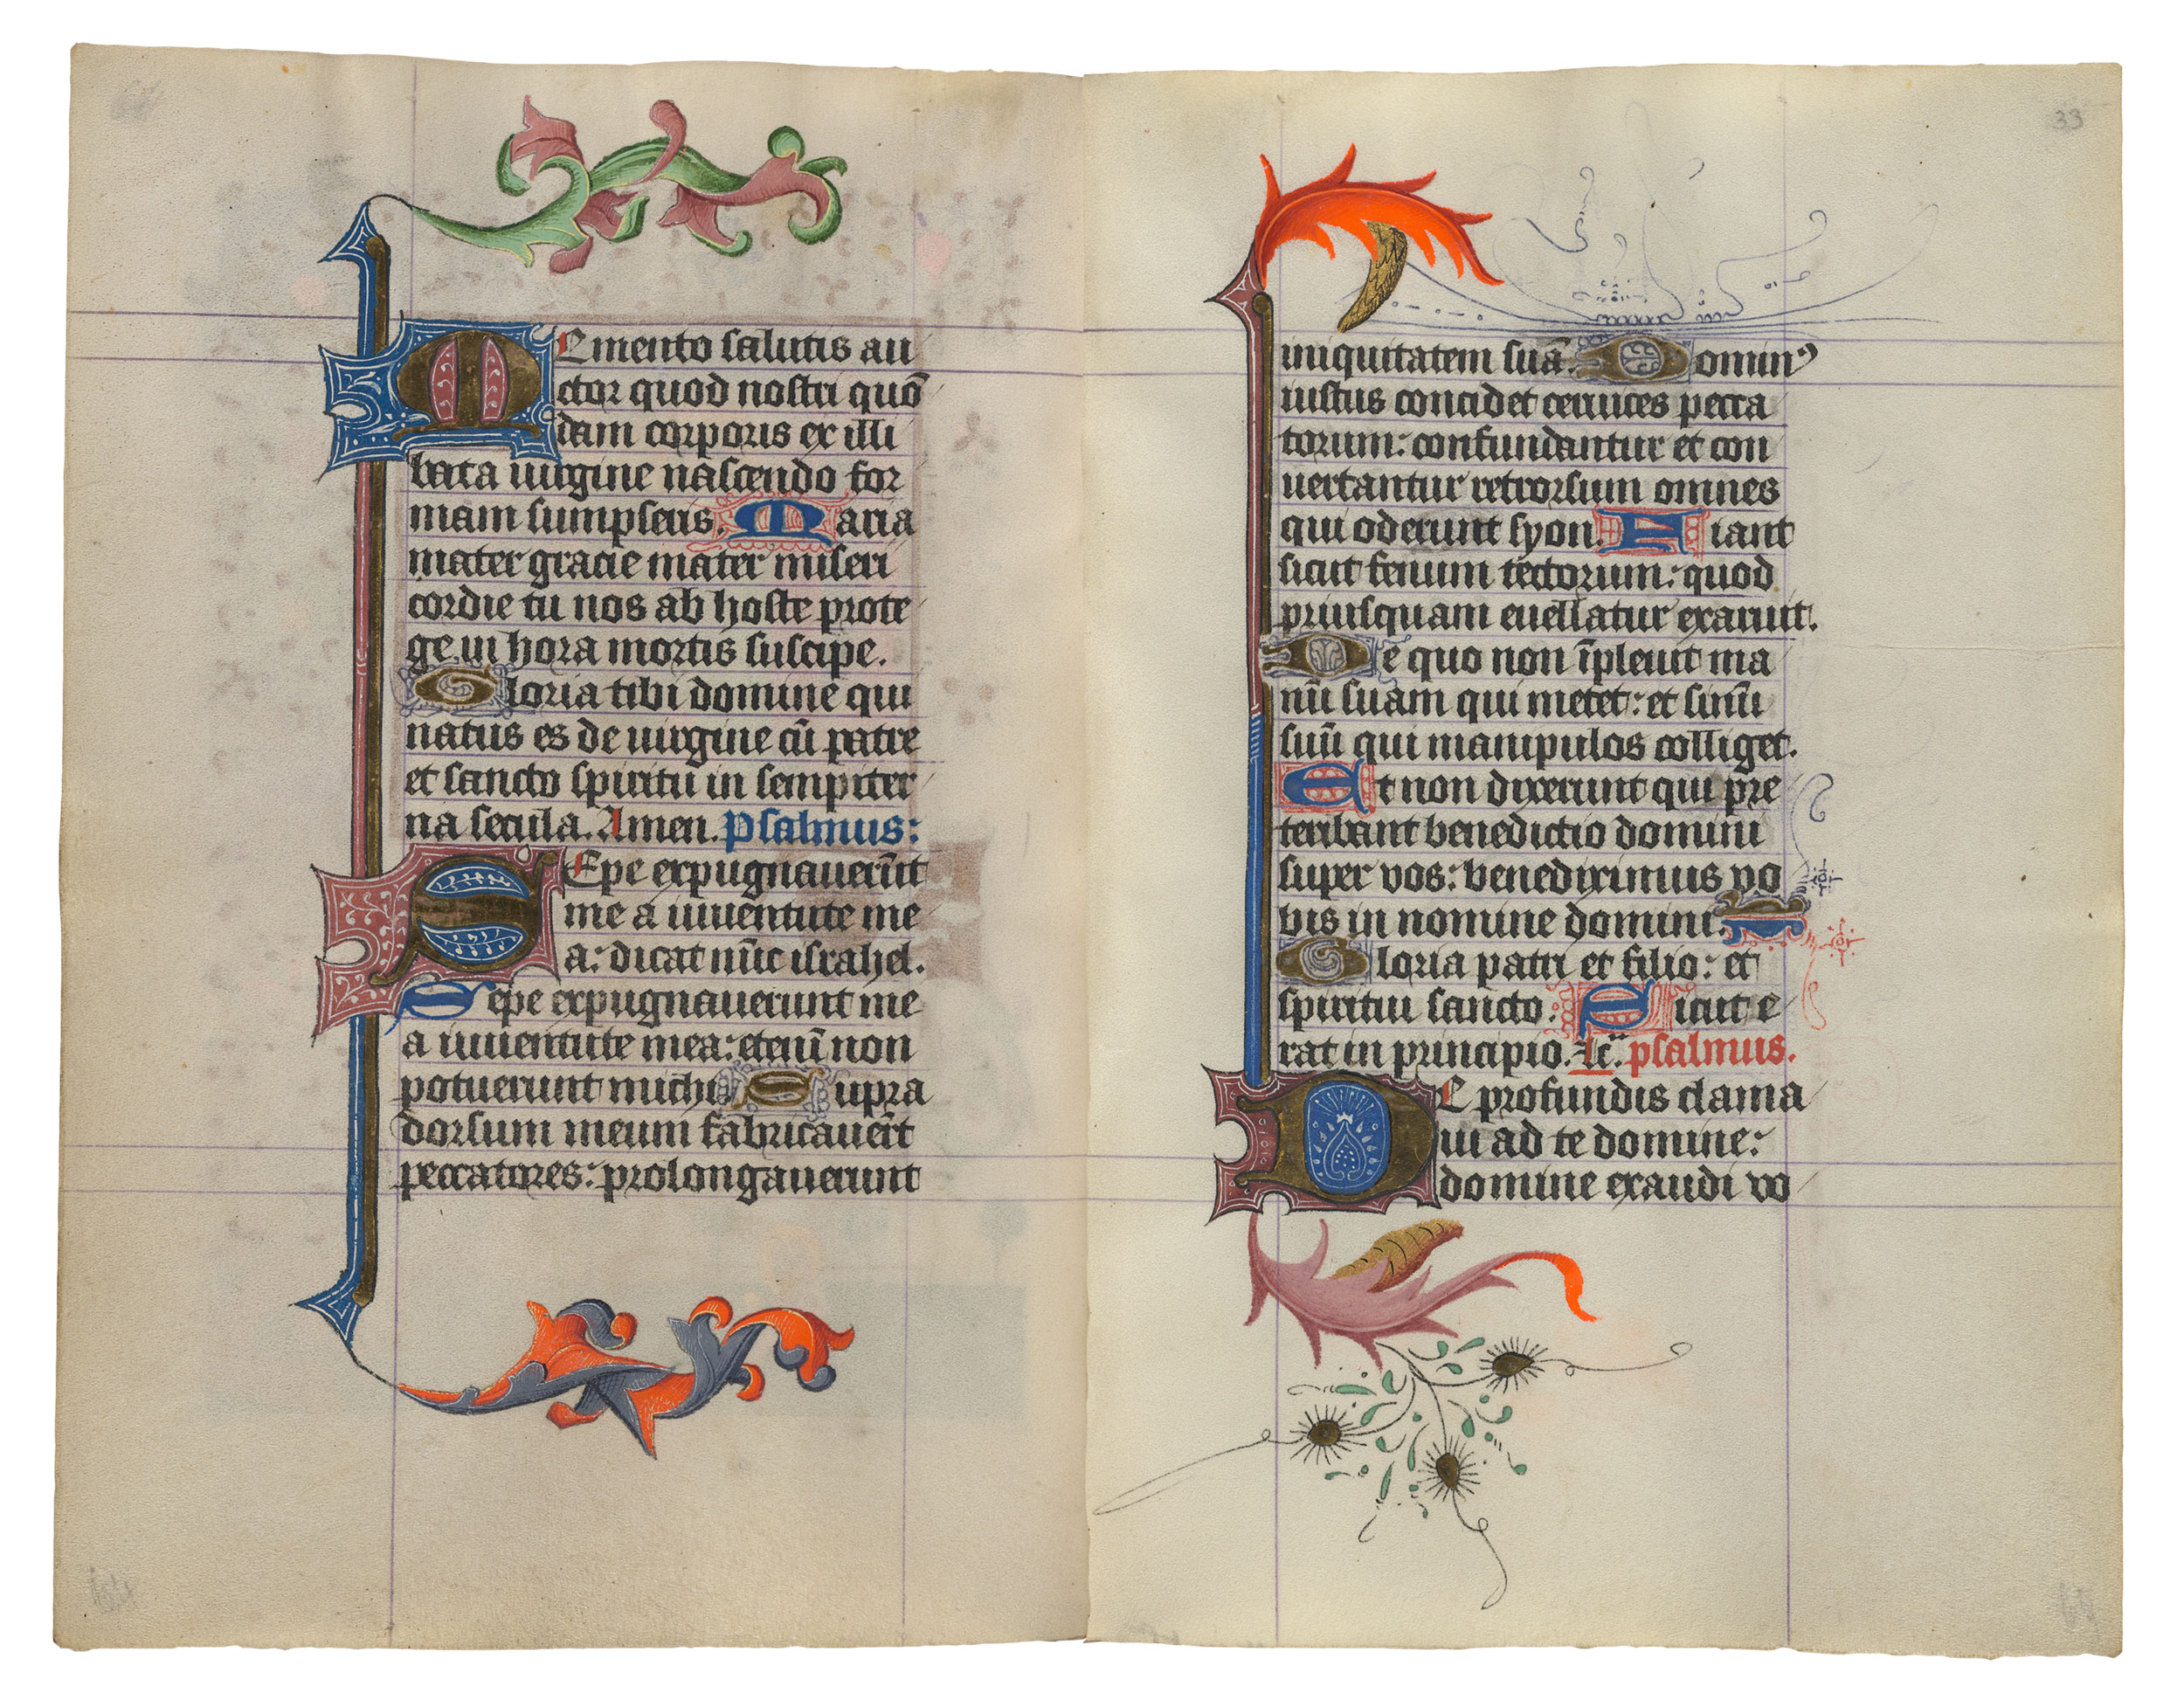 Memento salutis au
ctor quod nostri quō
dam corporis ex illi
bata uirgine nascendo for
mam sumpseris. Maria
mater gracie mater miseri
cordie tu nos ab hoste prote
ge in hora mortis suscipe.
Gloria tibi domine qui
natus es de uirgine cū patre
et sancto spiritu in sempiter
na secula. Amen. Psalmus:
SEpe expugnauerūt
me a iuuentute me
a: dicat nūc israhel.
Sepe expugnauerunt me
a iuuentute mea: etenī non
potuerunt michi. Supra
dorsum meum fabricauer̄t
peccatores: prolongauerunt
33
iniquitatem suā. Dominꝰ
iustus concidet ceruices pecca
torum: confundantur et con
uertantur retrorsum omnes
qui oderunt syon. Fiant
sicut fenum tectorum: quod
priusquam euellatur exaruit.
De quo non īpleuit ma
nū suam qui metet: et sinū
suū qui manipulos colliget.
Et non dixerunt qui pre
teribant benedictio domini
super vos: benediximus vo
bis in nomine domini.
Gloria patri et filio: et
spiritui sancto: Sicut e
rat in principio. Ac̄. psalmus.
DE profundis clama
ui ad te domine:
domine exaudi vo